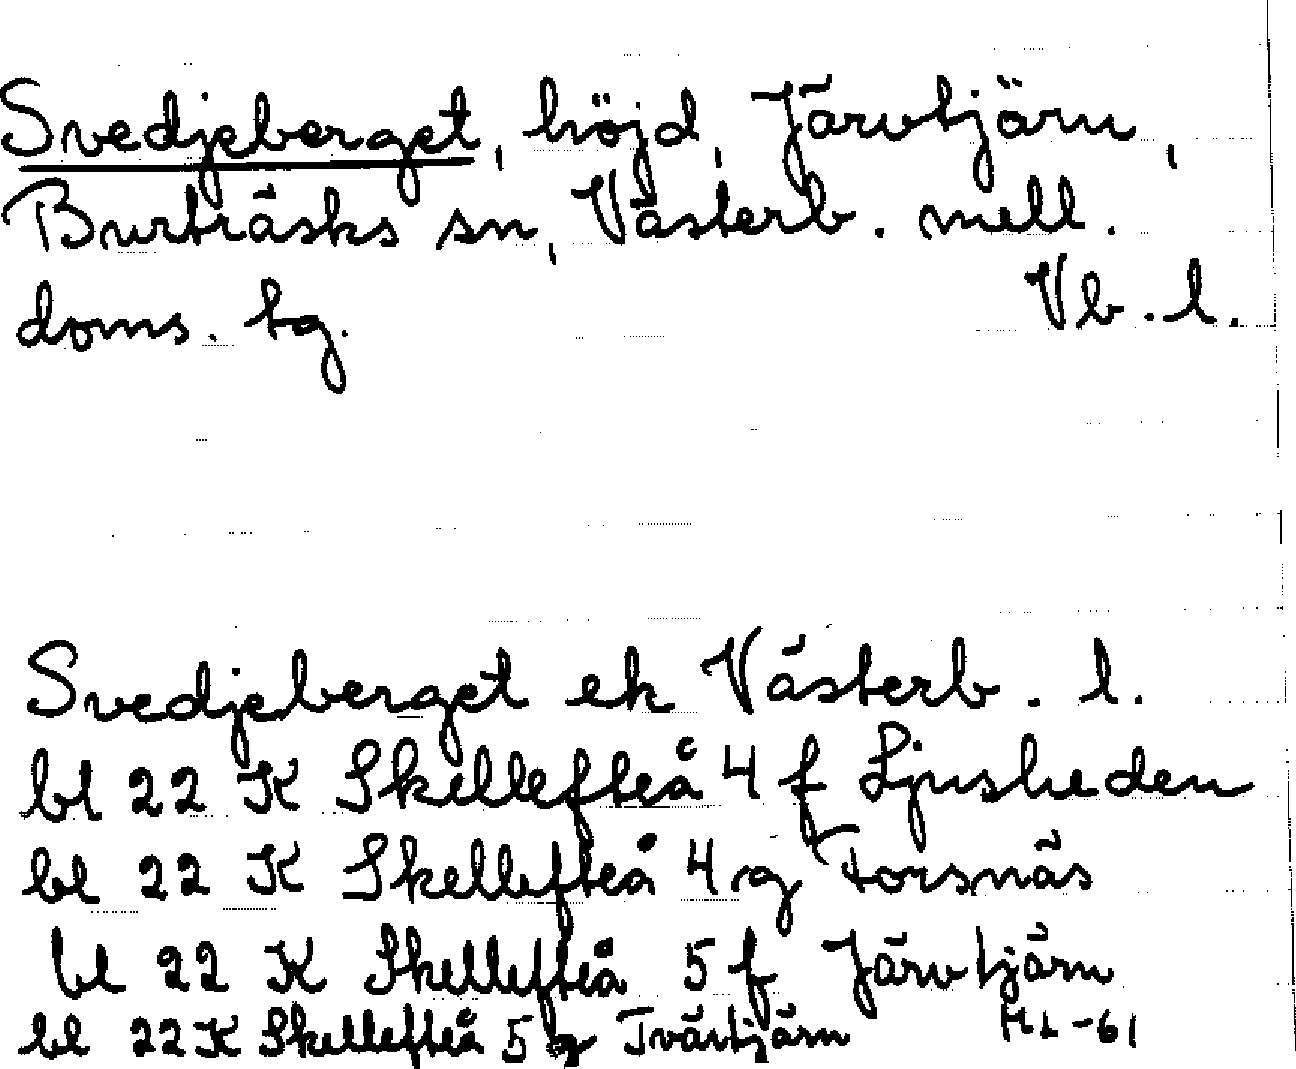 Svedjeberget, höjd, Järvtjärn,
Burträsks sn, Västerb. mell.
doms. tg. Vb. l.
Svedjeberget ek Västerb. l.
bl 22 K Skellefteå 4 f Ljusheden
bl 22 K Skellefteå 4 g Forsnäs
bl 22 K Skellefteå 5 f Järvtjärn
bl 22 K Skellefteå 5 g Tvärtjärn